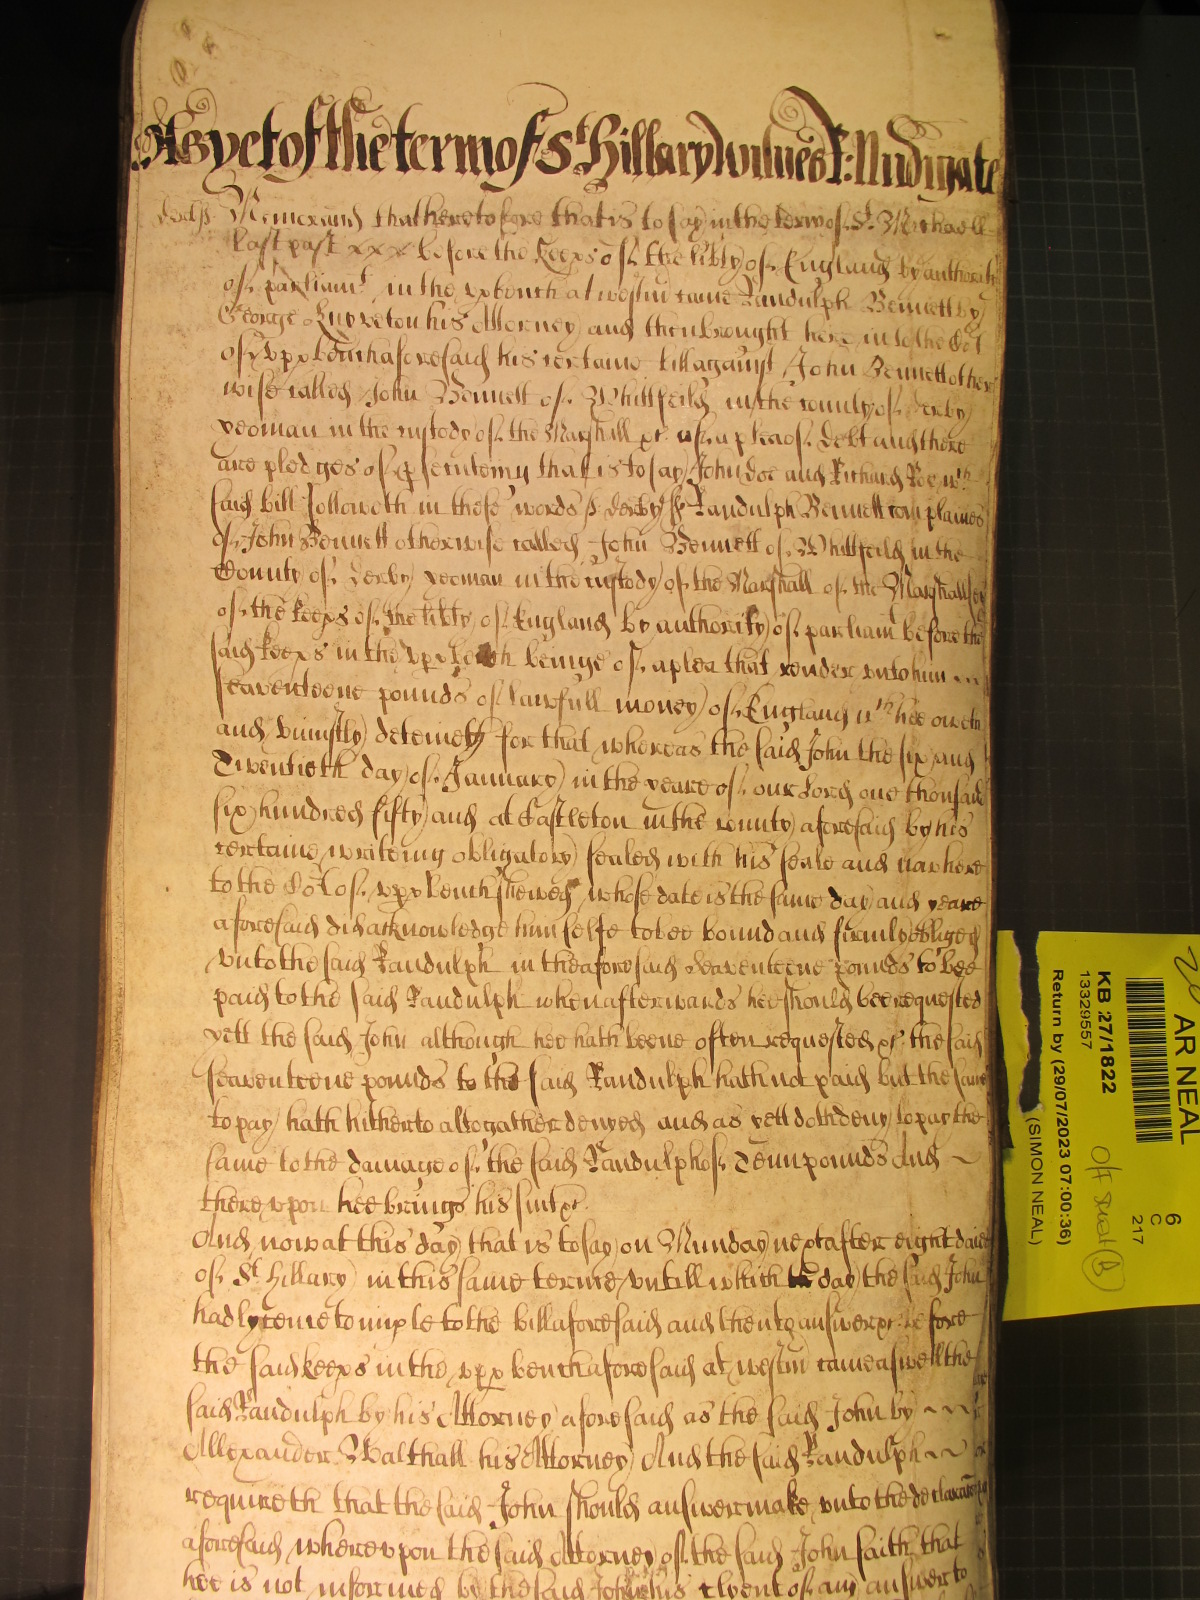 As yet of the terme of St Hillary Wittnes F: Nudigate
derbs. Memorand that heretofore that is to say in the terme of St Michaell
last past xxx before the Keeps of the libty of England by authoritie
of parliamt in the upp bench at westm came Randulph Bennett by
George his Attorney and then brought here into the Cort
of upp bench aforesaid his certaine bill against John Bennett other
wise called John Bennett of Whittfeild in the county of derby
yeoman in the custody of the Marshall &c of a plea of debt and there
are pledges of psecuteing that is to say John doe and Richard Roe wch
said bill followeth in these words s derby ss Randulph Bennett complaines
of John Bennett otherwise called John Bennett of Whittfeild in the
County of derby yeoman in the custody of the Marshall of the Marshallsey
of the keeps of the libty of England by authority of parliamt before the
said keeps in the upp bench beinge of a plea that render unto him
seaventeene pounds of lawfull money of England wch hee oweth
and uniustly deteineth for that whereas the said John the six and
Twentieth day of January in the yeare of our Lord one thousand
six hundred fifty and at Castleton in the county aforesaid by his
certaine writeing obligatory sealed with his seale and now here
to the Cort of upp bench shewed whose date is the same day and yeare
aforesaid did acknowledge himselfe to bee bound and firmly obliged
unto the said Randulph in the aforesaid seaventeene pounds to bee
paid to the said Randulph when afterwards hee should bee requested
yett the said John although hee hath beene often requested &c the said
seaventeene pounds to the said Randulph hath not paid but the same
to pay hath hitherto altogather denyed and as yett doth deny to pay the
same to the damage of the said Randulph of Tenn pounds And
thereupon hee brings his suit &c
And now at this day that is to say on Munday next after eight daies
of St Hillary in this same terme untill which day the said John
had lycence to imple to the bill aforesaid and then to answer &c before
the said keeps in the upp bench aforesaid at westm came aswell the
said Randulph by his Attorney aforesaid as the said John by
Allexander Walthall his Attorney And the said Randulph
requireth that the said John should answer make unto the declaracon
aforesaid whereupon the said Attorney of the said John saith that
hee is not informed by the said John his clyent of any answer to
AR NEAL
6
C
217
KB 27/1822
13329557
Off Street (B)
Return by (29/07/2023 07:00:36)
(SIMON NEAL)